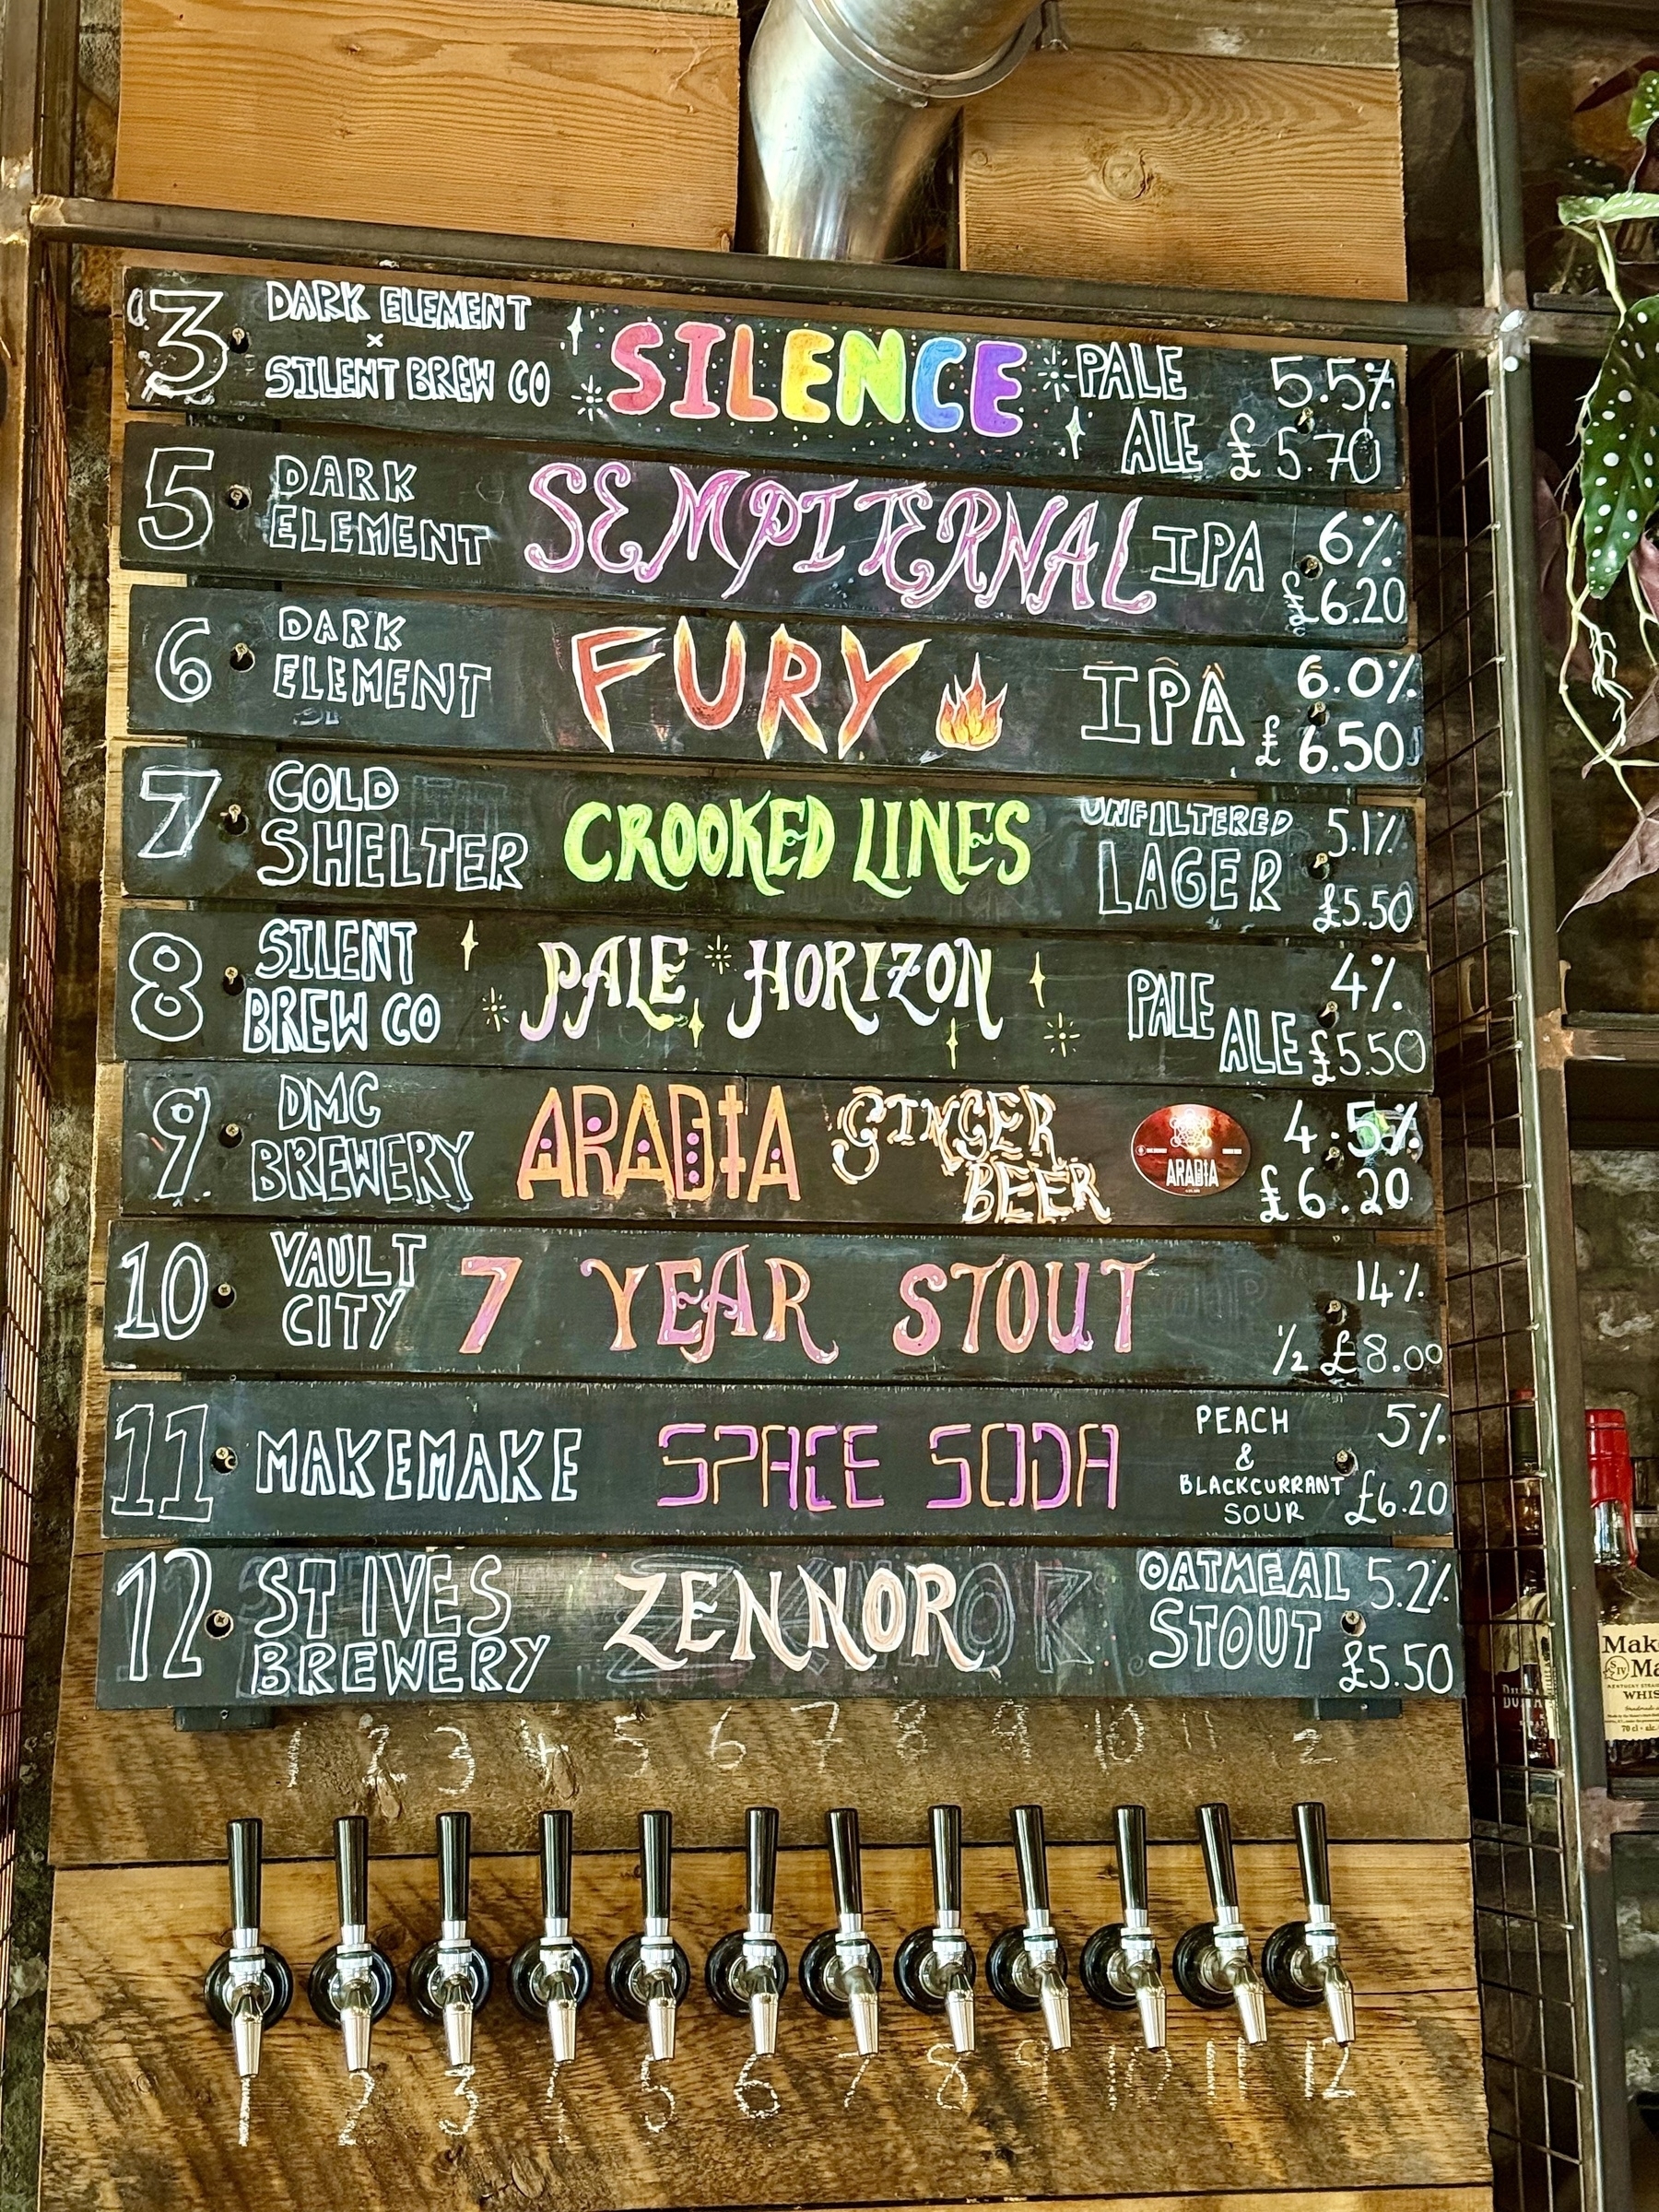 3 DARK ELEMENT
×
SILENT BREW CO
SILENCE
PALE
ALE
5.5%
£5.70
5 DARK
ELEMENT
SEMPITERNAL
IPA
6%
£6.20
6 DARK
ELEMENT
FURY
IPA
6.0%
£6.50
7 COLD
SHELTER
CROOKED LINES
UNFILTERED
LAGER
5.1%
£5.50
8 SILENT
BREW CO
PALE HORIZON
PALE
ALE
4%
£5.50
9 DMC
BREWERY
ARADIA
GINGER
BEER
ARADIA
4.5%
£6.20
10 VAULT
CITY
7 YEAR STOUT
14%
1/2 £8.00
11 MAKEMAKE
SPACE SODA
PEACH
&
BLACKCURRANT
SOUR
5%
£6.20
12 ST IVES
BREWERY
ZENNOR
OATMEAL
STOUT
5.2%
£5.50
1 2 3 4 5 6 7 8 9 10 11 2
1 2 3 5 6 7 8 9 10 11 12
WHIS
70 cl